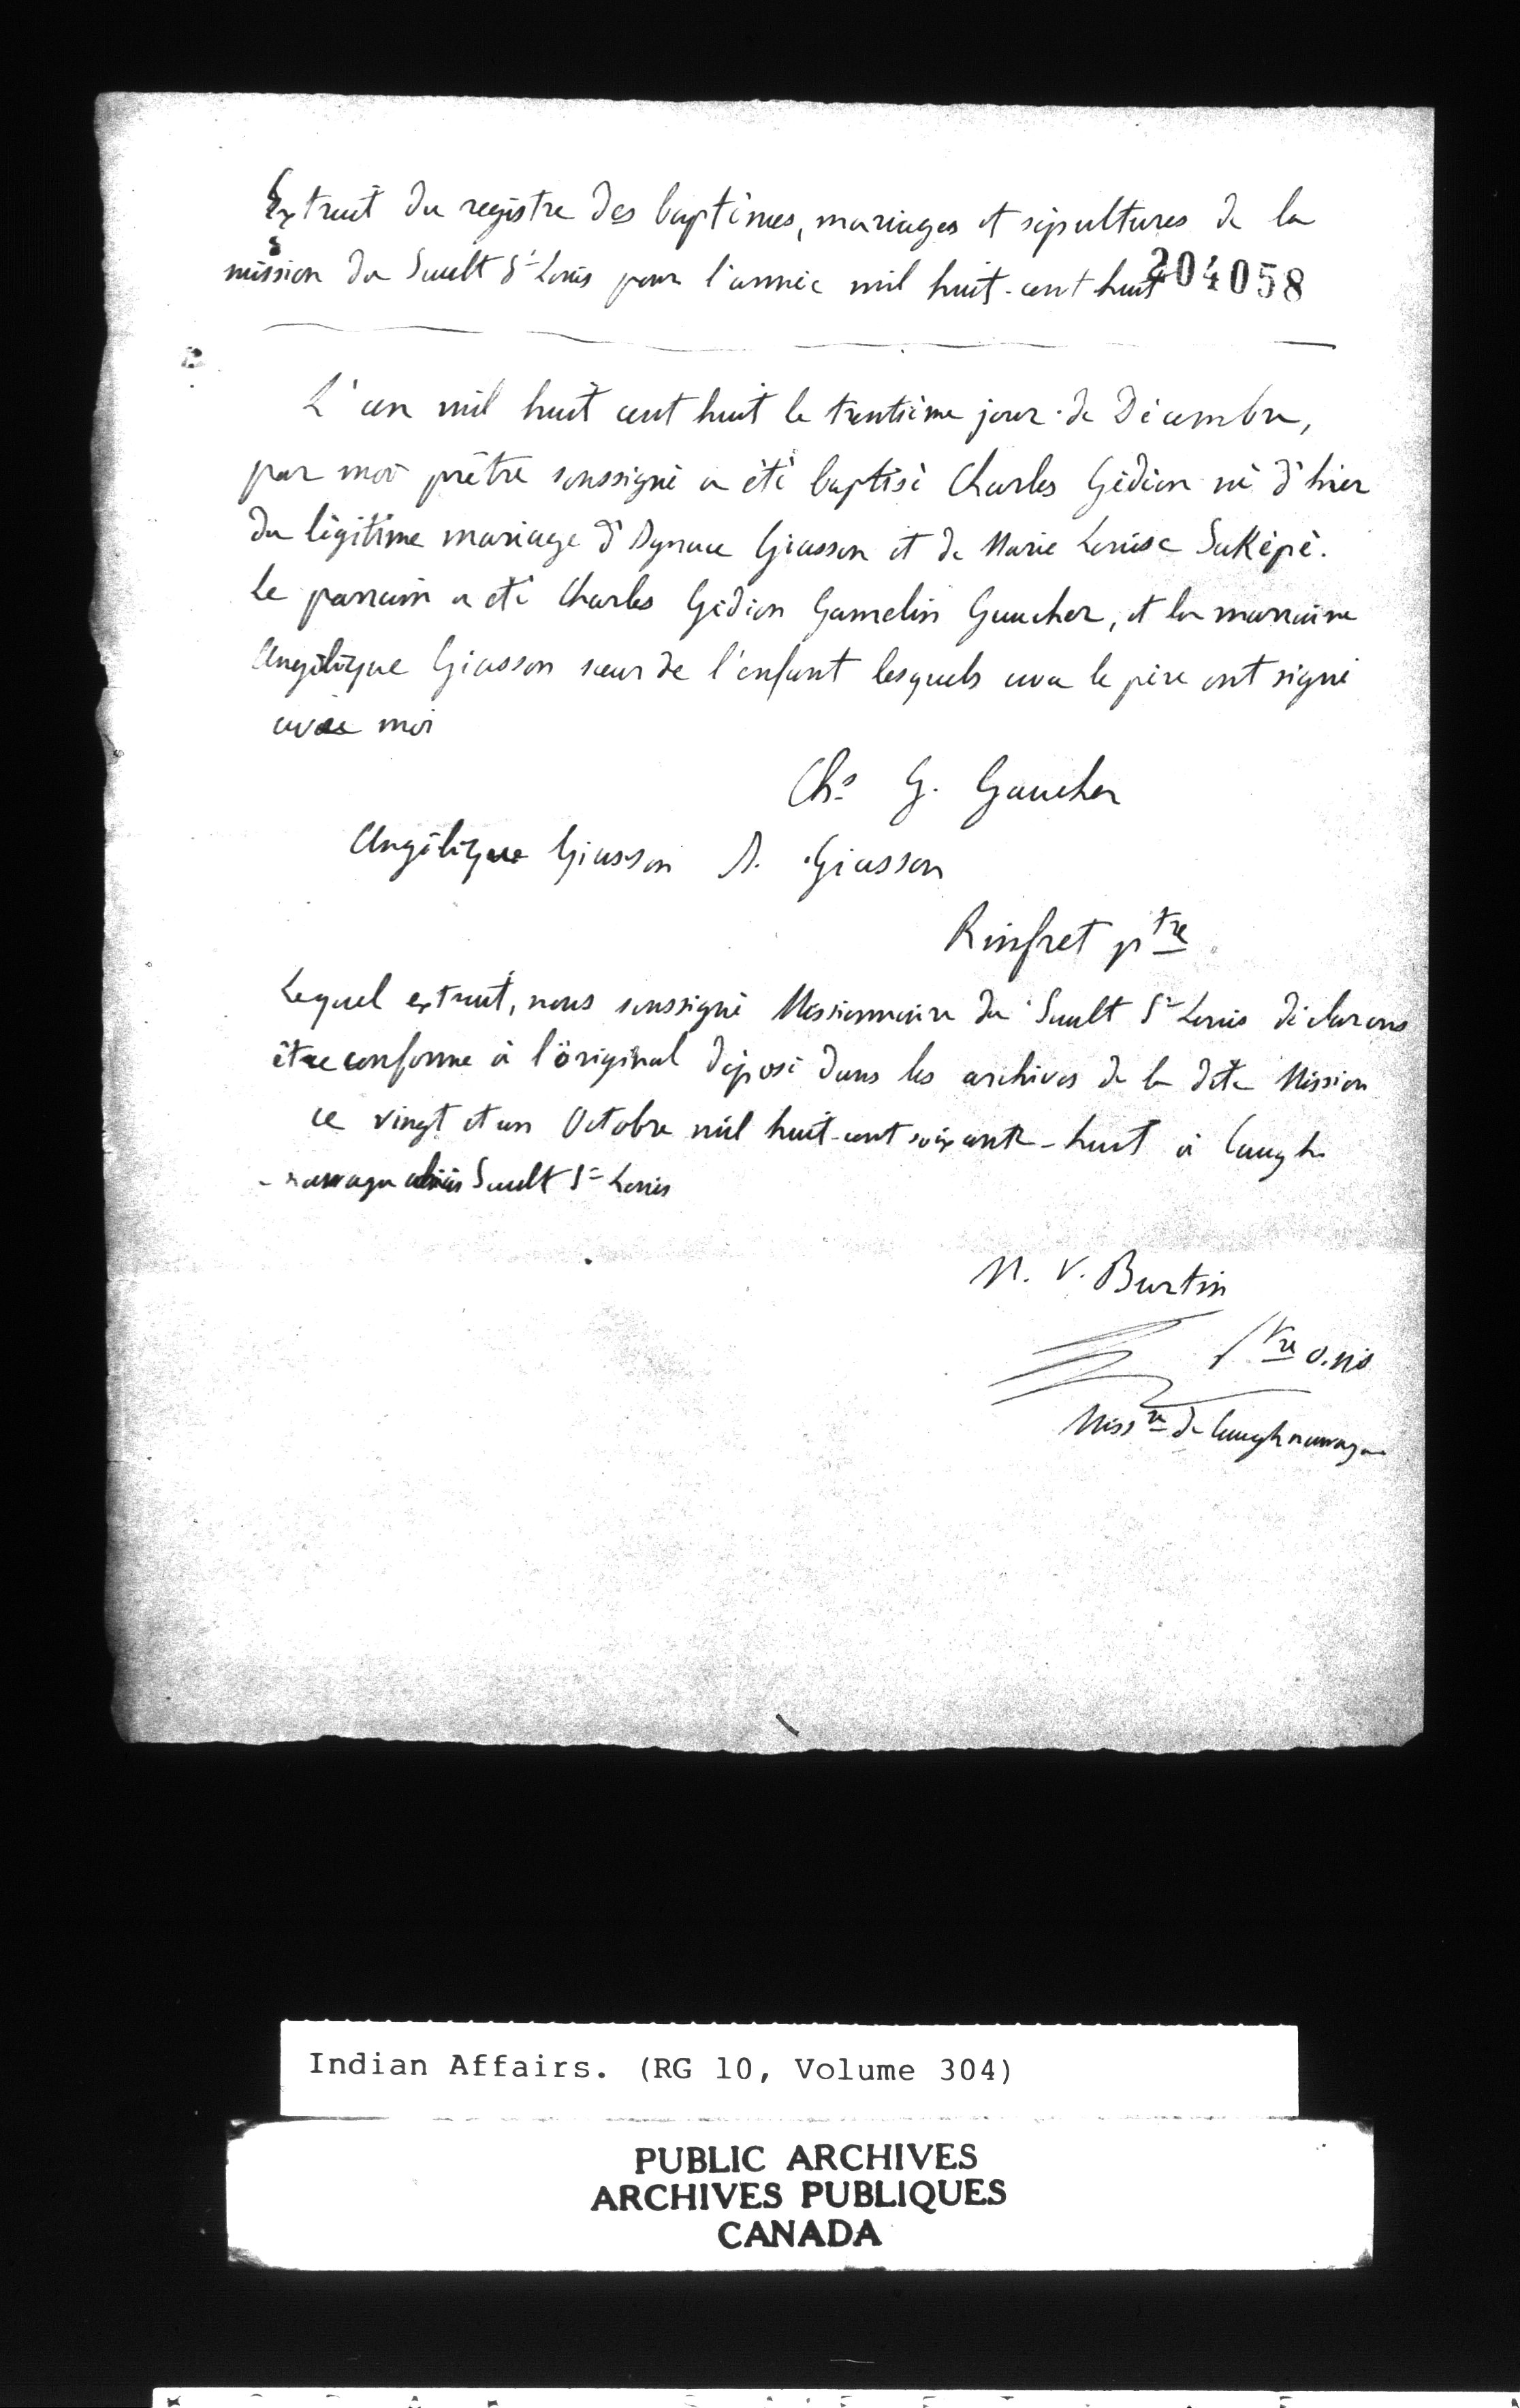 Extrait du registre des baptêmes, mariages et sépultures de la
mission du Sault St Louis pour l'année mil huit-cent huit
204058
L'an mil huit cent huit le trentième jour de Décembre,
par moi prêtre soussigné a été baptisé Charles Gédéon né d'hier
du légitime mariage d'Ignace Giasson et de Marie Louise Saképé.
Le parrain a été Charles Gédéon Gamelin Gaucher, et la marraine
Angélique Giasson sœur de l'enfant lesquels avec le père ont signé
avec moi
Chs G. Gaucher
Angélique Giasson I. Giasson
Rinfret ptre
Lequel extrait, nous soussigné Missionnaire du Sault St Louis déclarons
être conforme à l'original déposé dans les archives de la dite Mission
ce vingt et un Octobre mil huit-cent soixante-huit à Caugh
-nawaga alias Sault St Louis
N. V. Burtin
Ptre o.m.i
Missre de Caughnawaga
Indian Affairs. (RG 10, Volume 304)
PUBLIC ARCHIVES
ARCHIVES PUBLIQUES
CANADA